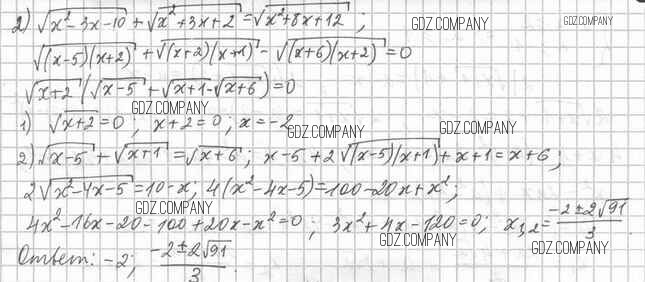 2) √(x²-3x-10) + √(x²+3x+2) = √(x²+8x+12) ; GDZ.COMPANY GDZ.COMPANY
√((x-5)(x+2)) + √((x+2)(x+1)) - √((x+6)(x+2)) = 0 GDZ.COMPANY
√(x+2) (√(x-5) + √(x+1) - √(x+6)) = 0
GDZ.COMPANY
1) √(x+2) = 0 ; x+2=0 ; x=-2 GDZ.COMPANY GDZ.COMPANY
2) √(x-5) + √(x+1) = √(x+6) ; x-5+2√((x-5)(x+1)) + x+1 = x+6 ;
2√(x²-4x-5) = 10-x ; 4(x²-4x-5) = 100-20x+x² ;
GDZ.COMPANY
4x²-16x-20-100+20x-x²=0 ; 3x²+4x-120=0 ; x₁,₂ = (-2±2√91)/3 .
GDZ.COMPANY GDZ.COMPANY
Ответ: -2 ; (-2±2√91)/3 .